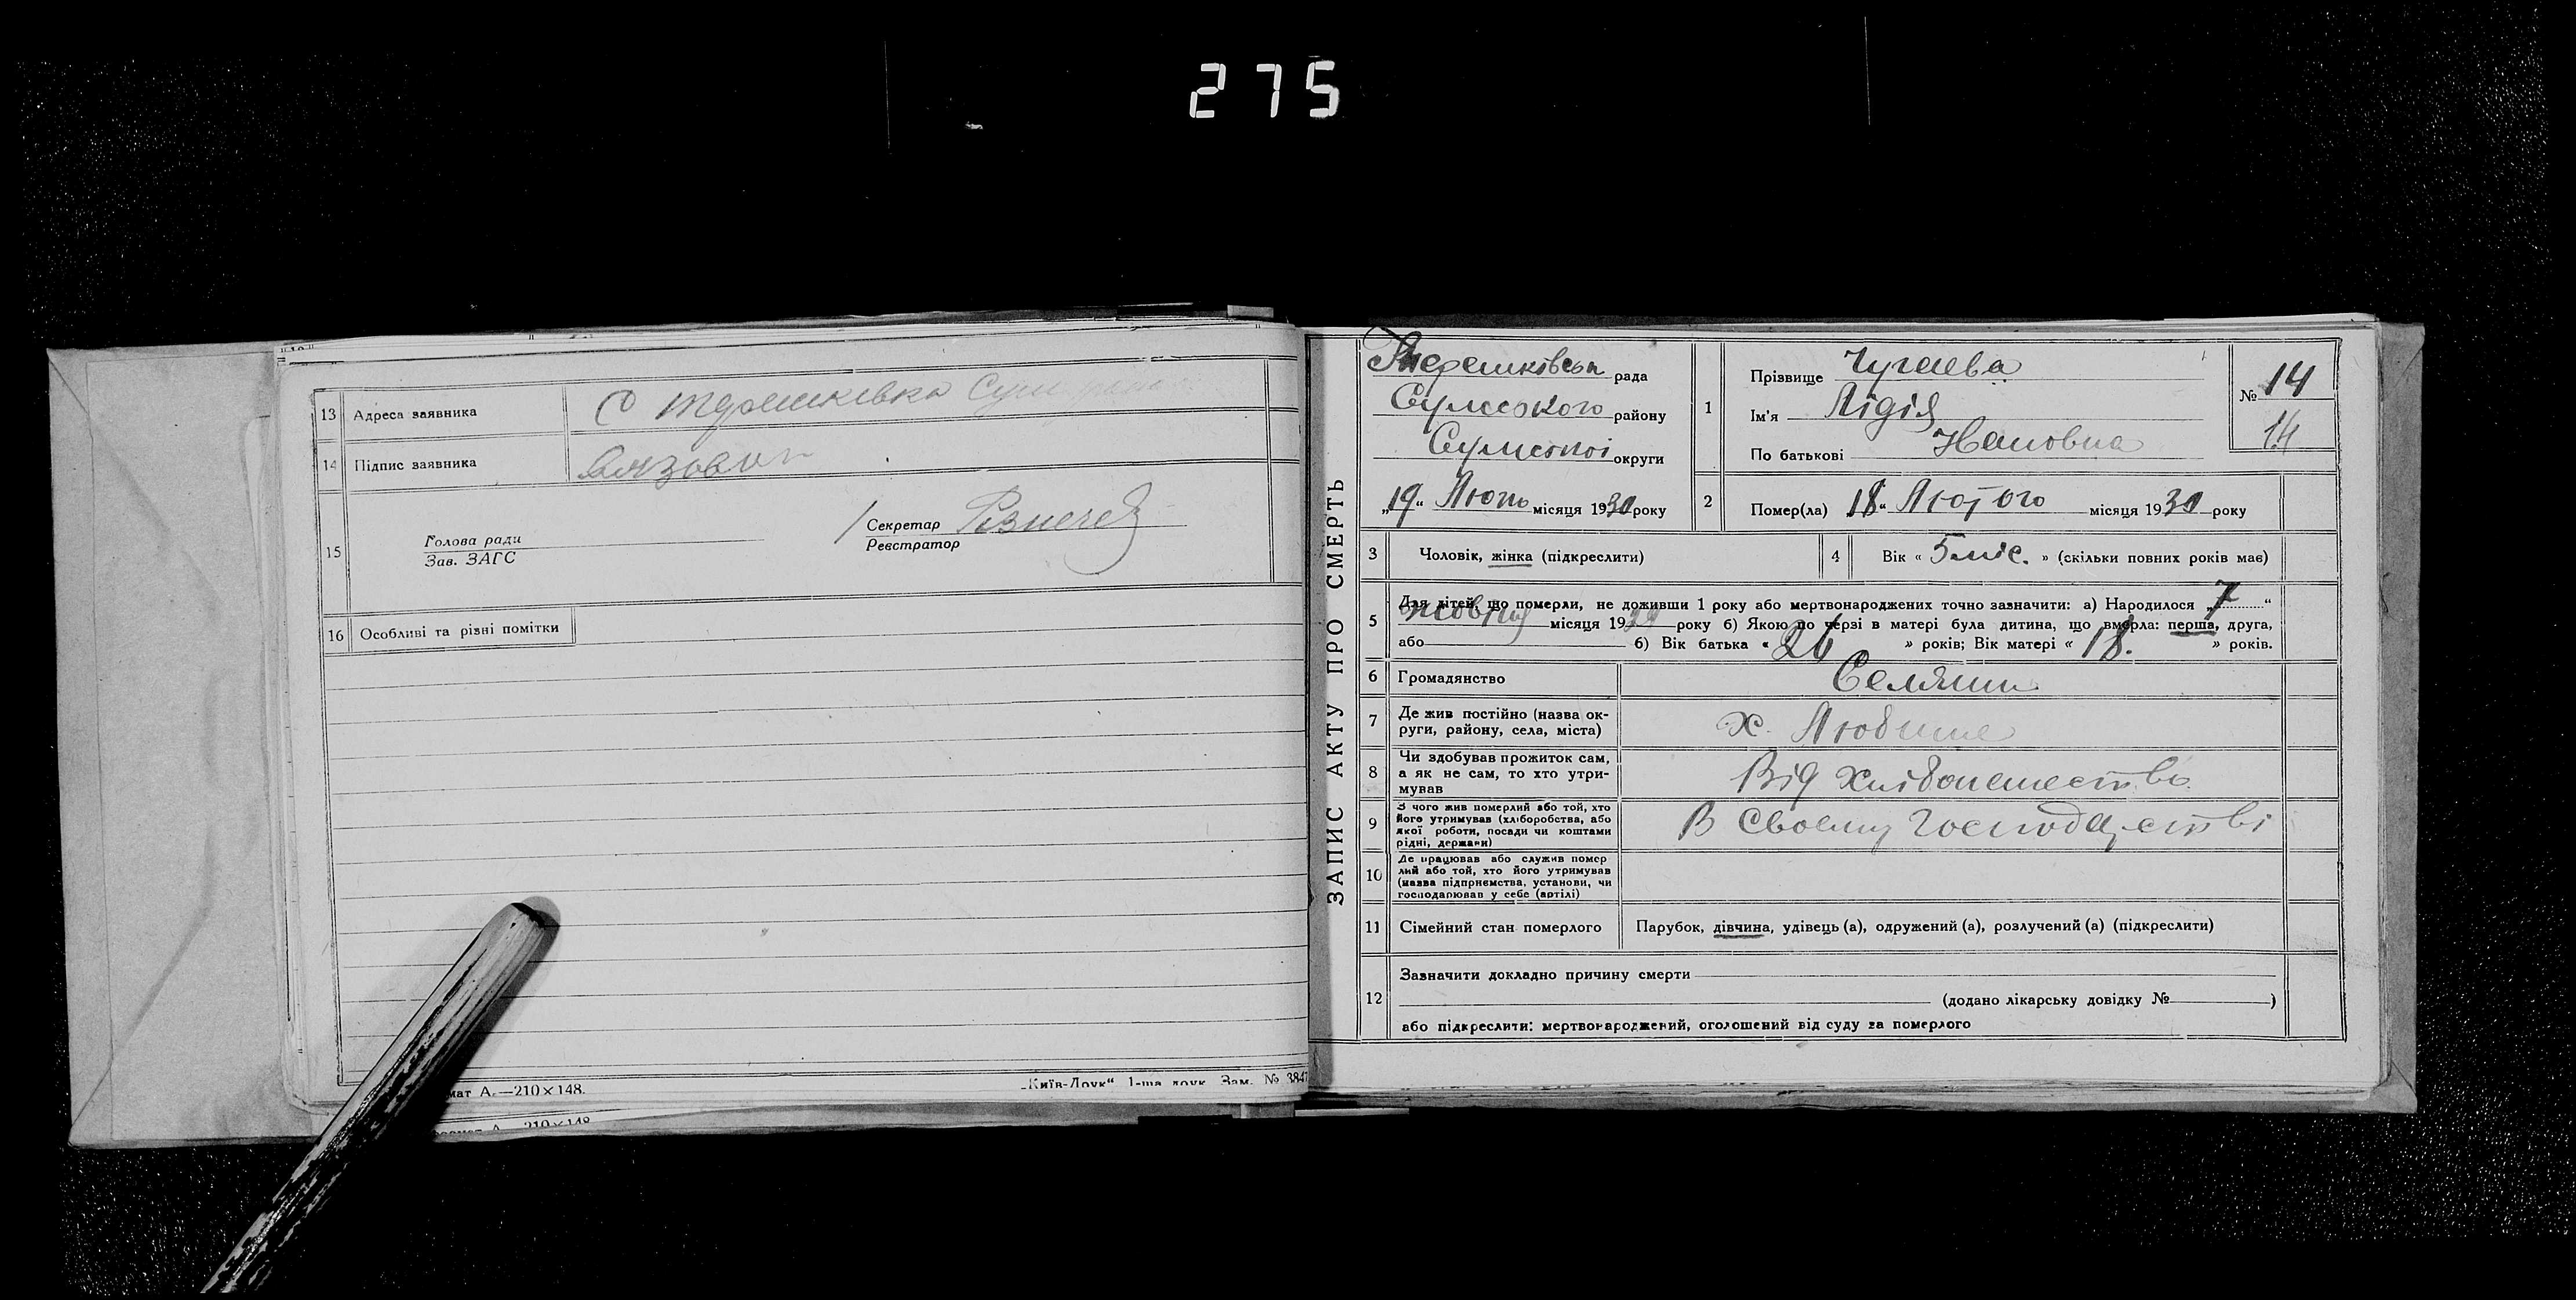 275
13 Адреса заявника С Терешківка Сум
14 Підпис заявника
15 Голова ради
Зав. ЗАГС
Секретар
Реєстратор
16 Особливі та різні помітки
мат А₅—210×148.
„Київ-Друк“ 1-ша друк. Зам. № 3847
210×148
ЗАПИС АКТУ ПРО СМЕРТЬ
Терешківська рада
Сумського району
Сумської округи
„19“ Лютого місяця 1930 року
1 Прізвище Чугаєва
Ім'я Лідія
По батькові
№ 14
14
2 Помер(ла) 18“ Лютого місяця 1930 року
3 Чоловік, жінка (підкреслити)
4 Вік « 5 міс. » (скільки повних років має)
5 Для дітей, що померли, не доживши 1 року або мертвонароджених точно зазначити: а) Народилося „7“
жовтня місяця 1929 року б) Якою по черзі в матері була дитина, що вмерла: перша, друга,
або б) Вік батька « 26 » років; Вік матері « 18. » років.
6 Громадянство Селянин
7 Де жив постійно (назва ок-
руги, району, села, міста) х.
8 Чи здобував прожиток сам,
а як не сам, то хто утри-
мував Від
9 З чого жив померлий або той, хто
його утримував (хліборобства, або
якої роботи, посади чи коштами
рідні, держави) В своєму господарстві
10 Де працював або служив помер
лий або той, хто його утримував
(назва підприємства, установи, чи
господарював у себе (артілі)
11 Сімейний стан померлого Парубок, дівчина, удівець (а), одружений (а), розлучений (а) (підкреслити)
12 Зазначити докладно причину смерти
(додано лікарську довідку № )
або підкреслити: мертвонароджений, оголошений від суду за померлого